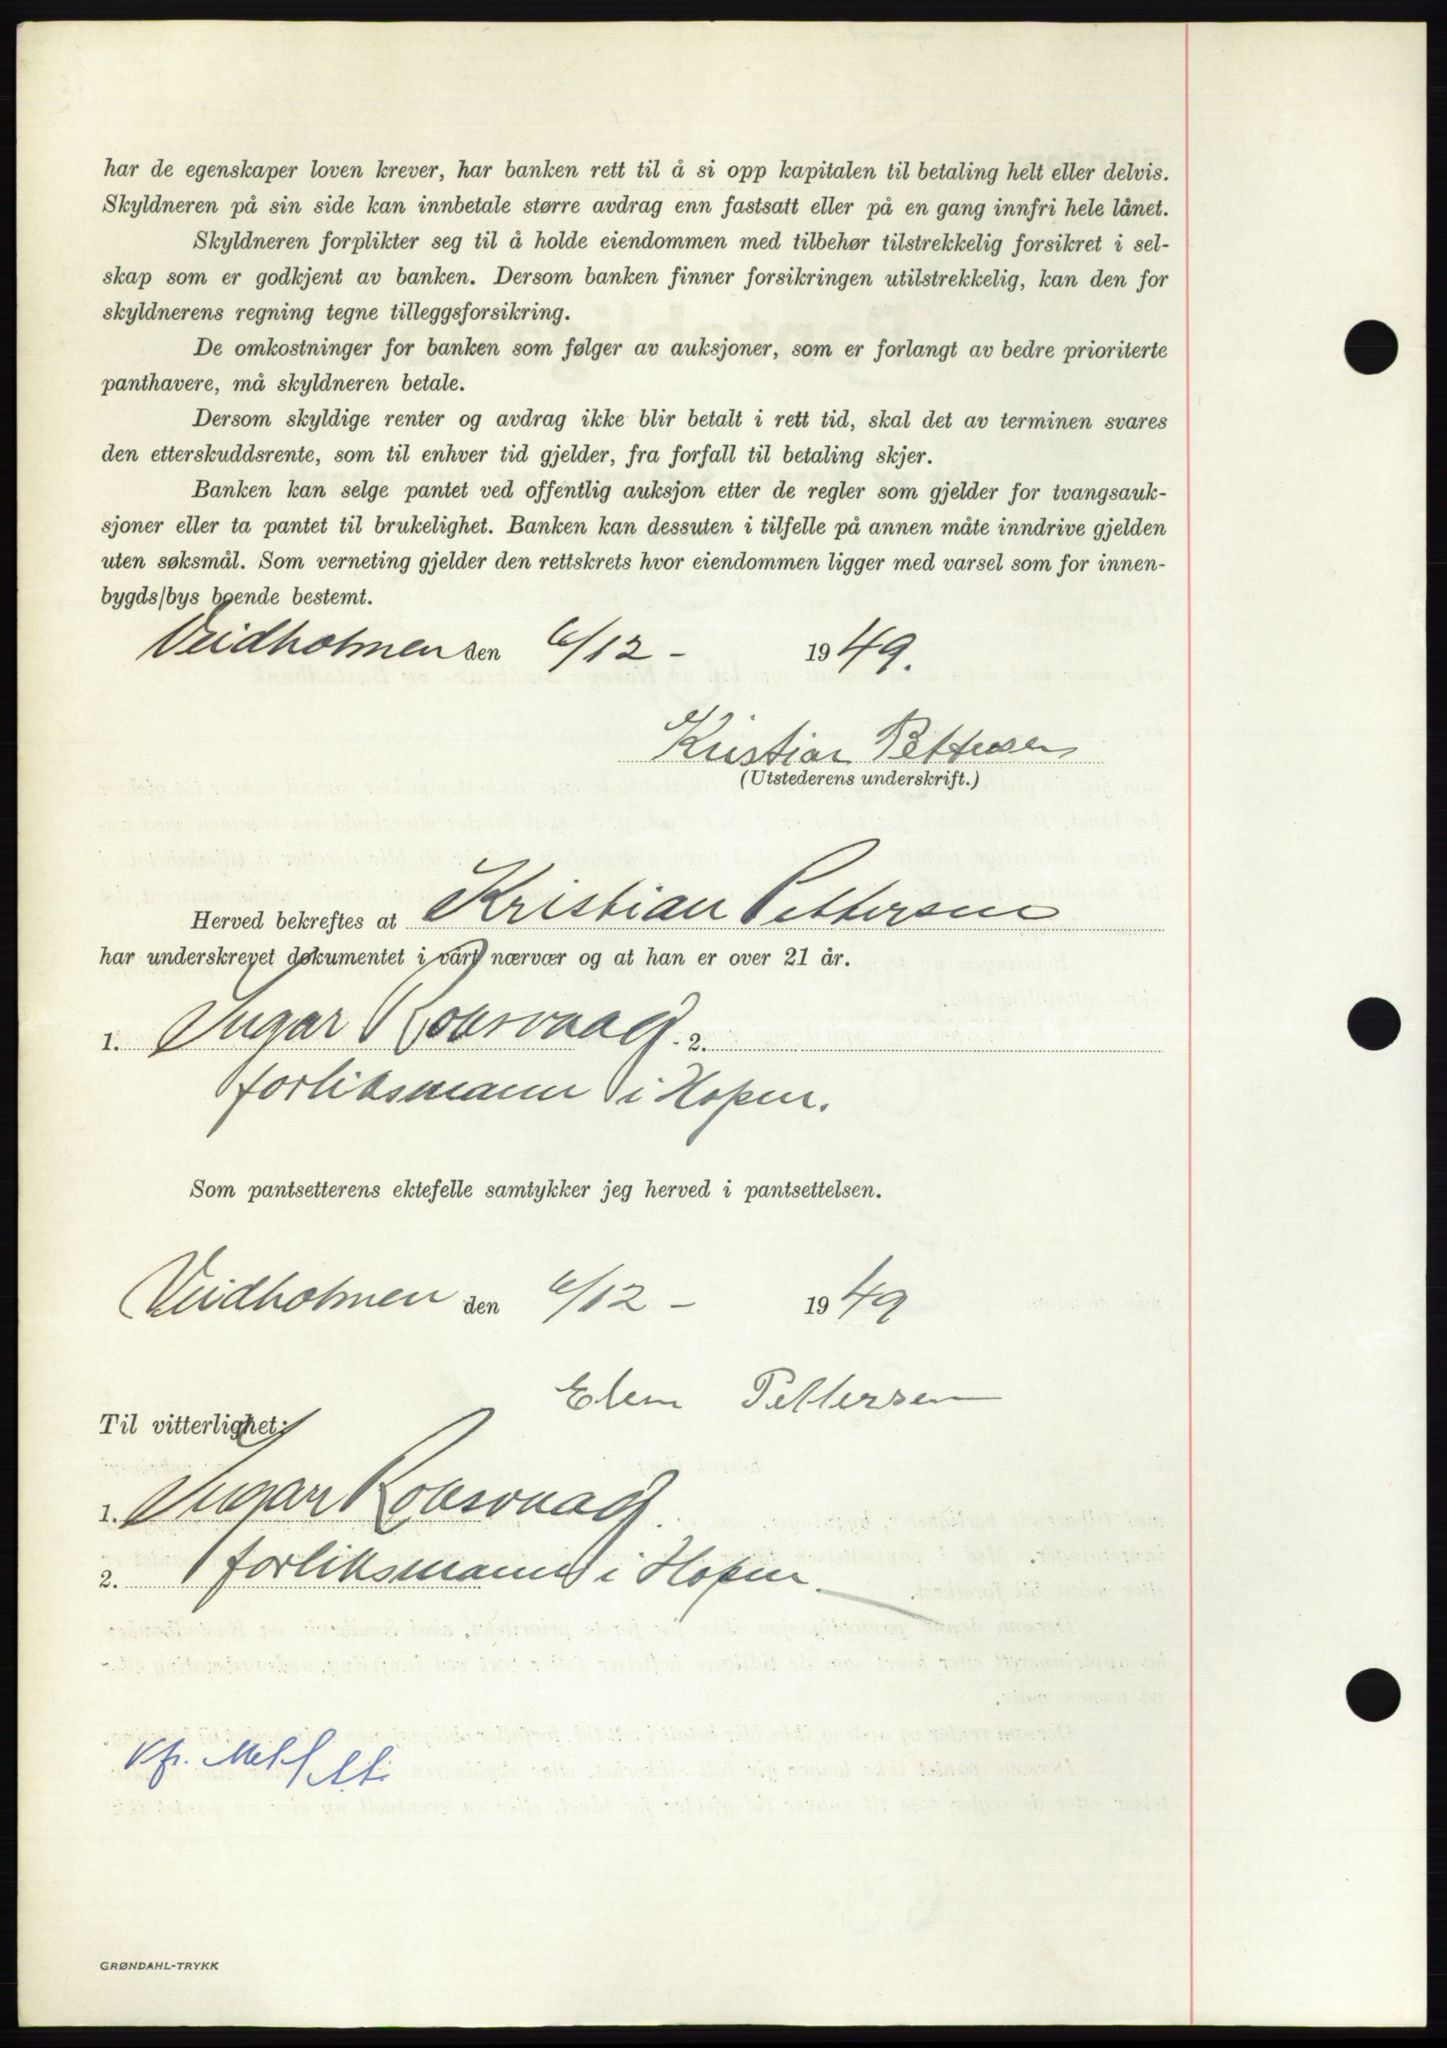 har de egenskaper loven krever, har banken rett til å si opp kapitalen til betaling helt eller delvis.
Skyldneren på sin side kan innbetale større avdrag enn fastsatt eller på en gang innfri hele lånet.
Skyldneren forplikter seg til å holde eiendommen med tilbehør tilstrekkelig forsikret i sel-
skap som er godkjent av banken. Dersom banken finner forsikringen utilstrekkelig, kan den for
skyldnerens regning tegne tilleggsforsikring.
De omkostninger for banken som følger av auksjoner, som er forlangt av bedre prioriterte
panthavere, må skyldneren betale.
Dersom skyldige renter og avdrag ikke blir betalt i rett tid, skal det av terminen svares
den etterskuddsrente, som til enhver tid gjelder, fra forfall til betaling skjer.
Banken kan selge pantet ved offentlig auksjon etter de regler som gjelder for tvangsauk-
sjoner eller ta pantet til brukelighet. Banken kan dessuten i tilfelle på annen måte inndrive gjelden
uten søksmål. Som verneting gjelder den rettskrets hvor eiendommen ligger med varsel som for innen-
bygds/bys boende bestemt.
Veidholmen den 6/12 - 1949.
Kristian Pettersen
(Utstederens underskrift.)
Herved bekreftes at Kristian Pettersen
har underskrevet dokumentet i vårt nærvær og at han er over 21 år.
1. Ingar Roksvaag 2.
forliksmann i Hopen.
Som pantsetterens ektefelle samtykker jeg herved i pantsettelsen.
Veidholmen den 6/12 - 1949
Pettersen
Til vitterlighet:
1. Ingar Roksvaag
2. forliksmann i Hopen.
GRØNDAHL-TRYKK